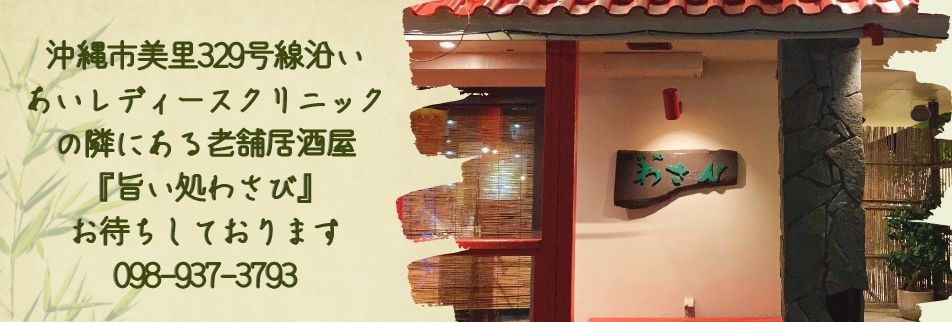 沖縄市美里329号線沿い
あいレディースクリニック
の隣にある老舗居酒屋
『旨い処わさび』
お待ちしております
098-937-3793
わさび